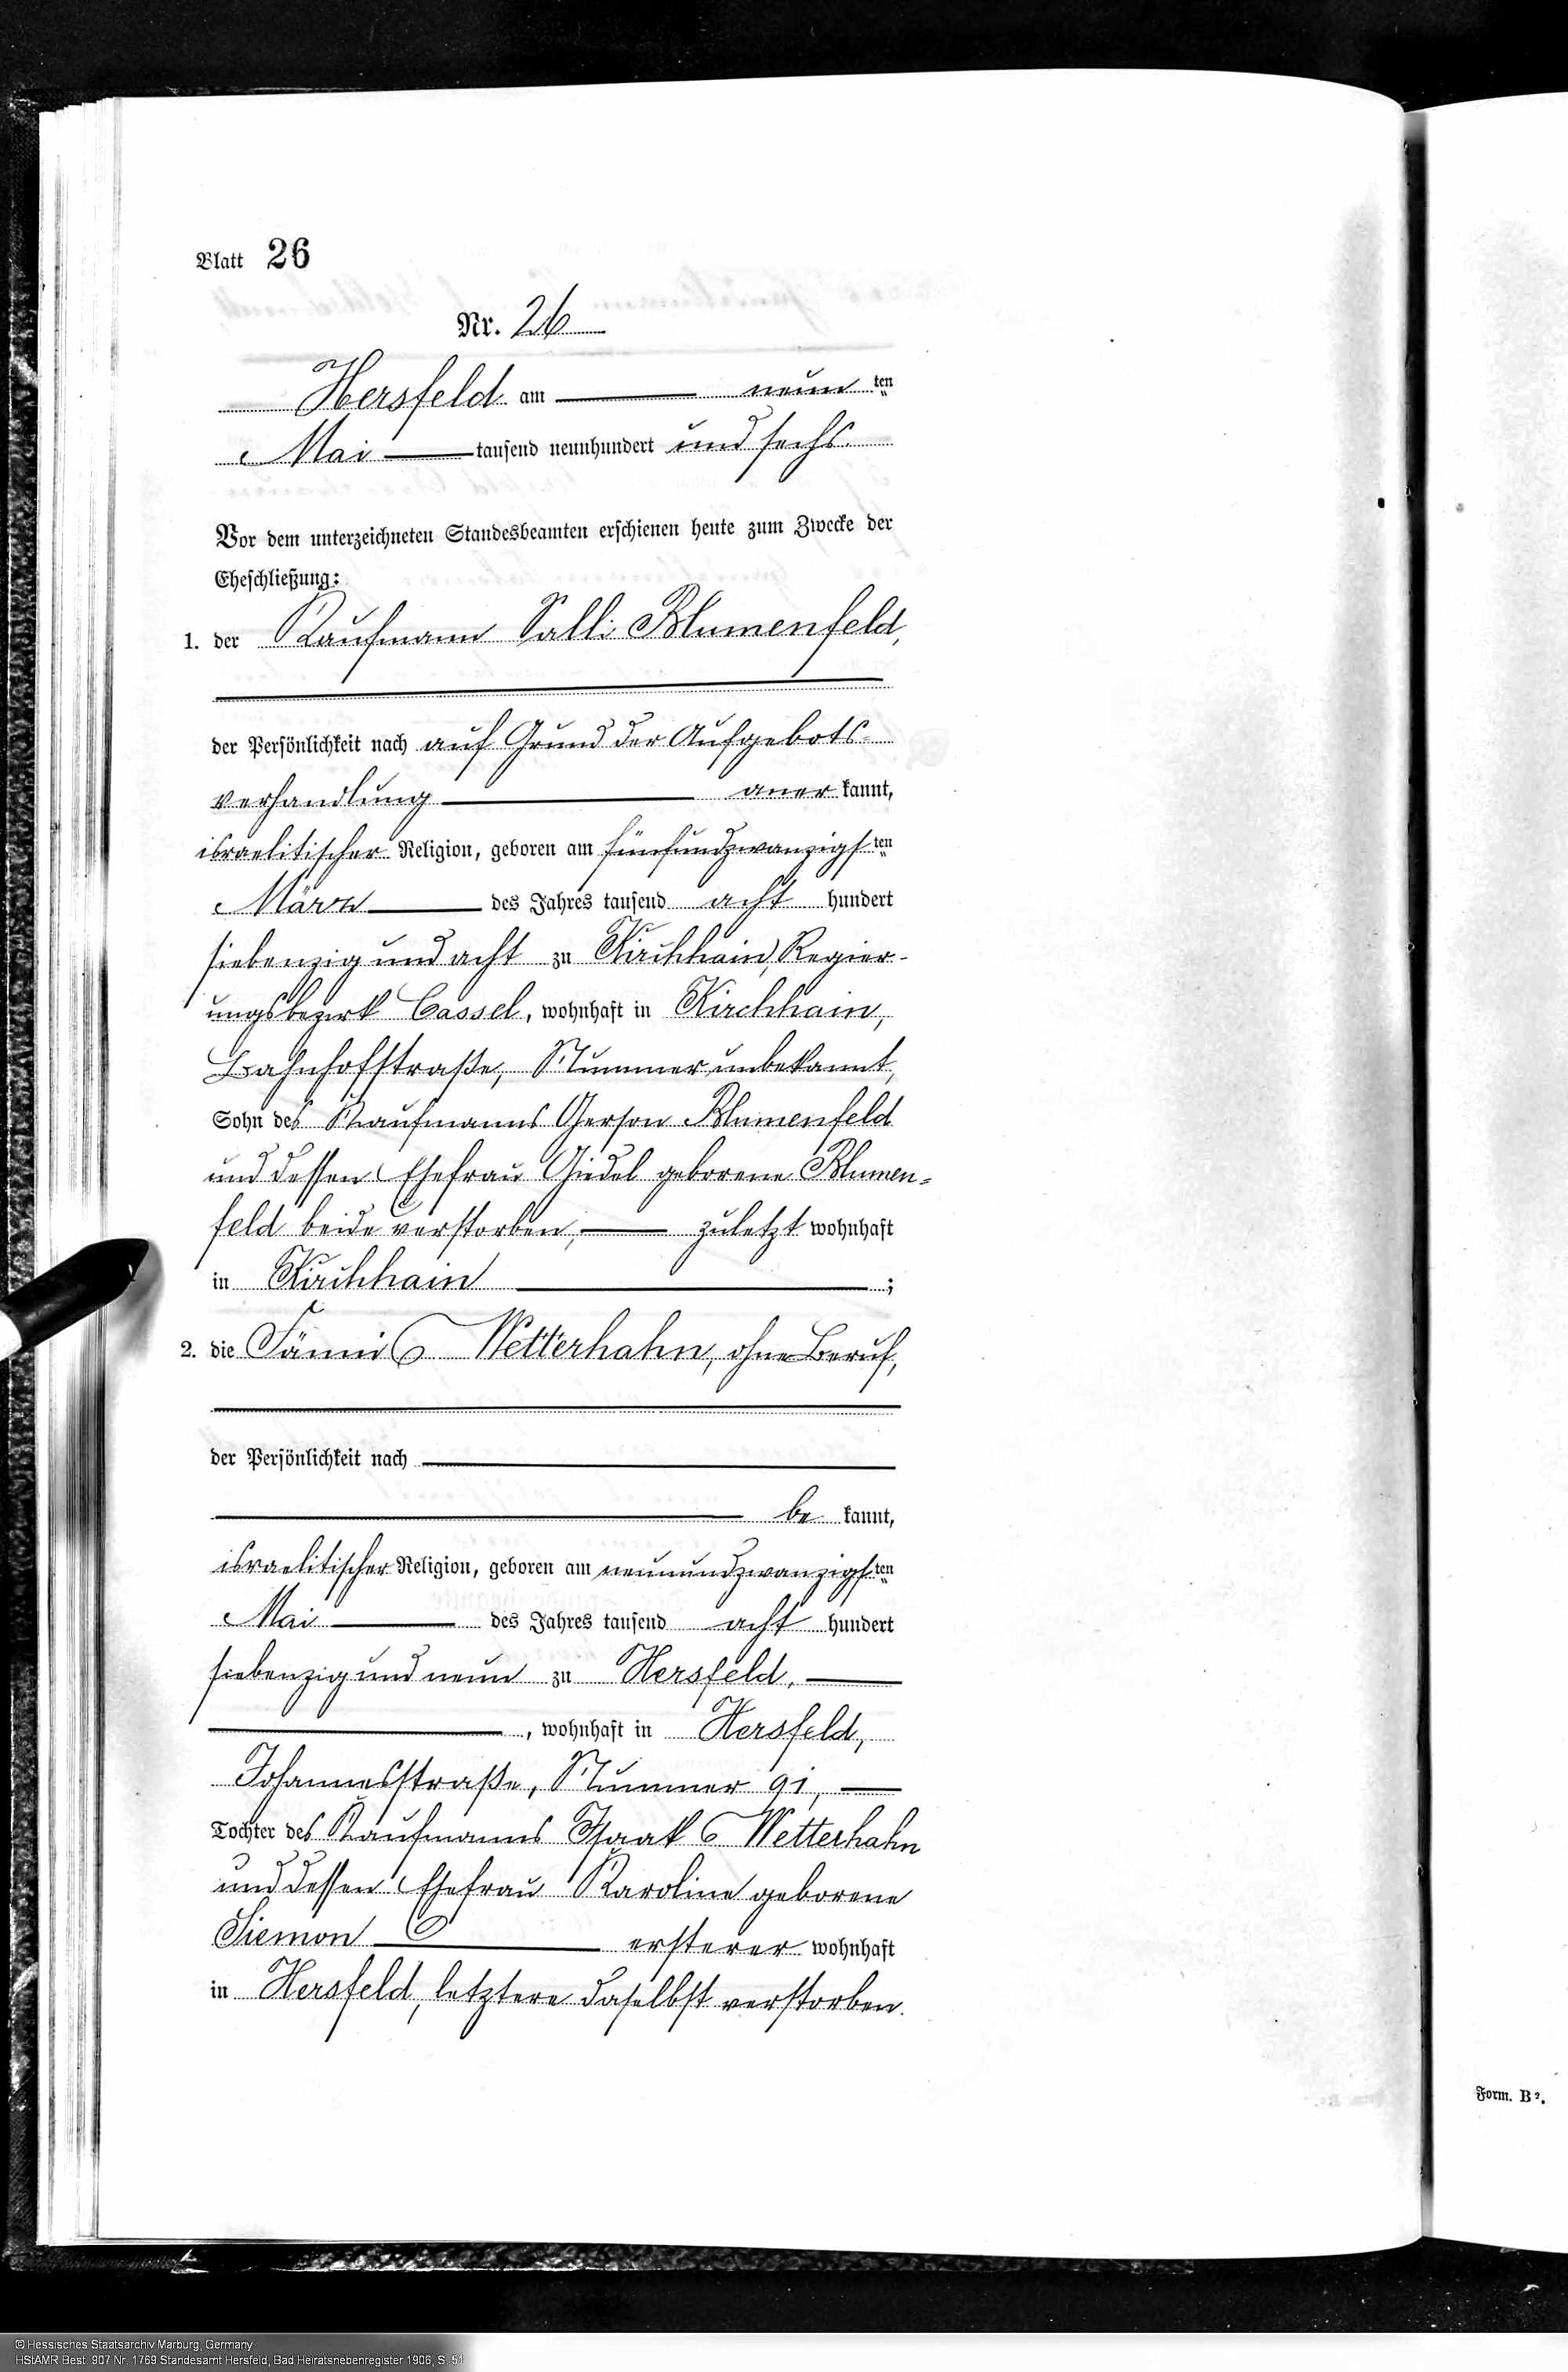 Blatt 26
Nr. 26
Hersfeld am neunten
Mai tausend neunhundert und sechs.
Vor dem unterzeichneten Standesbeamten erschienen heute zum Zwecke der
Eheschließung:
1. der Kaufmann Salli Blumenfeld,
der Persönlichkeit nach auf Grund der Aufgebots-
verhandlung anerkannt,
israelitischer Religion, geboren am fünfundzwanzigsten
März des Jahres tausend acht hundert
siebenzig und acht zu Kirchhain, Regier-
ungsbezirk Cassel, wohnhaft in Kirchhain,
Bahnhofstraße, Nummer unbekannt,
Sohn des Kaufmanns Gerson Blumenfeld
und dessen Ehefrau Giedel geborene Blumen-
feld beide verstorben, zuletzt wohnhaft
in Kirchhain ;
2. die Fänni Wetterhahn, ohne Beruf,
der Persönlichkeit nach
be kannt,
israelitischer Religion, geboren am neunundzwanzigsten
Mai des Jahres tausend acht hundert
siebenzig und neun zu Hersfeld,
, wohnhaft in Hersfeld,
Johannesstraße, Nummer 91,
Tochter des Kaufmanns Isaak Wetterhahn
und dessen Ehefrau Karoline geborene
Siemon ersterer wohnhaft
in Hersfeld, letztere daselbst verstorben.
Form. B².
© Hessisches Staatsarchiv Marburg, Germany
HStAMR Best. 907 Nr. 1769 Standesamt Hersfeld, Bad Heiratsnebenregister 1906, S. 51